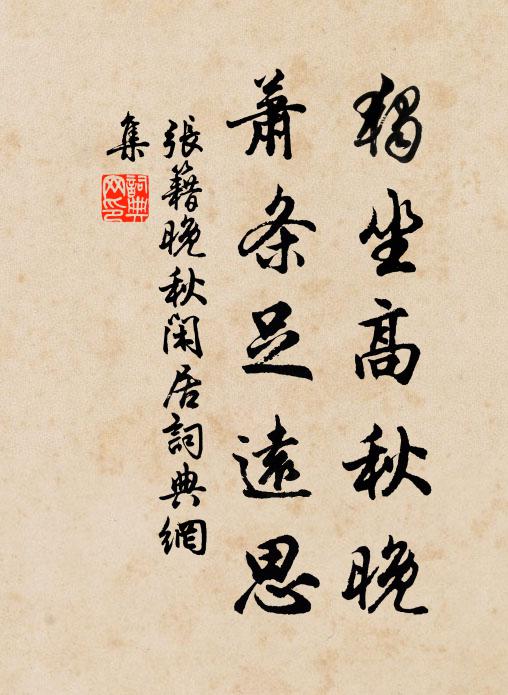 獨坐高秋晚
蕭条足遠思
張籍晚秋閑居詞典網
集
詞典
网印